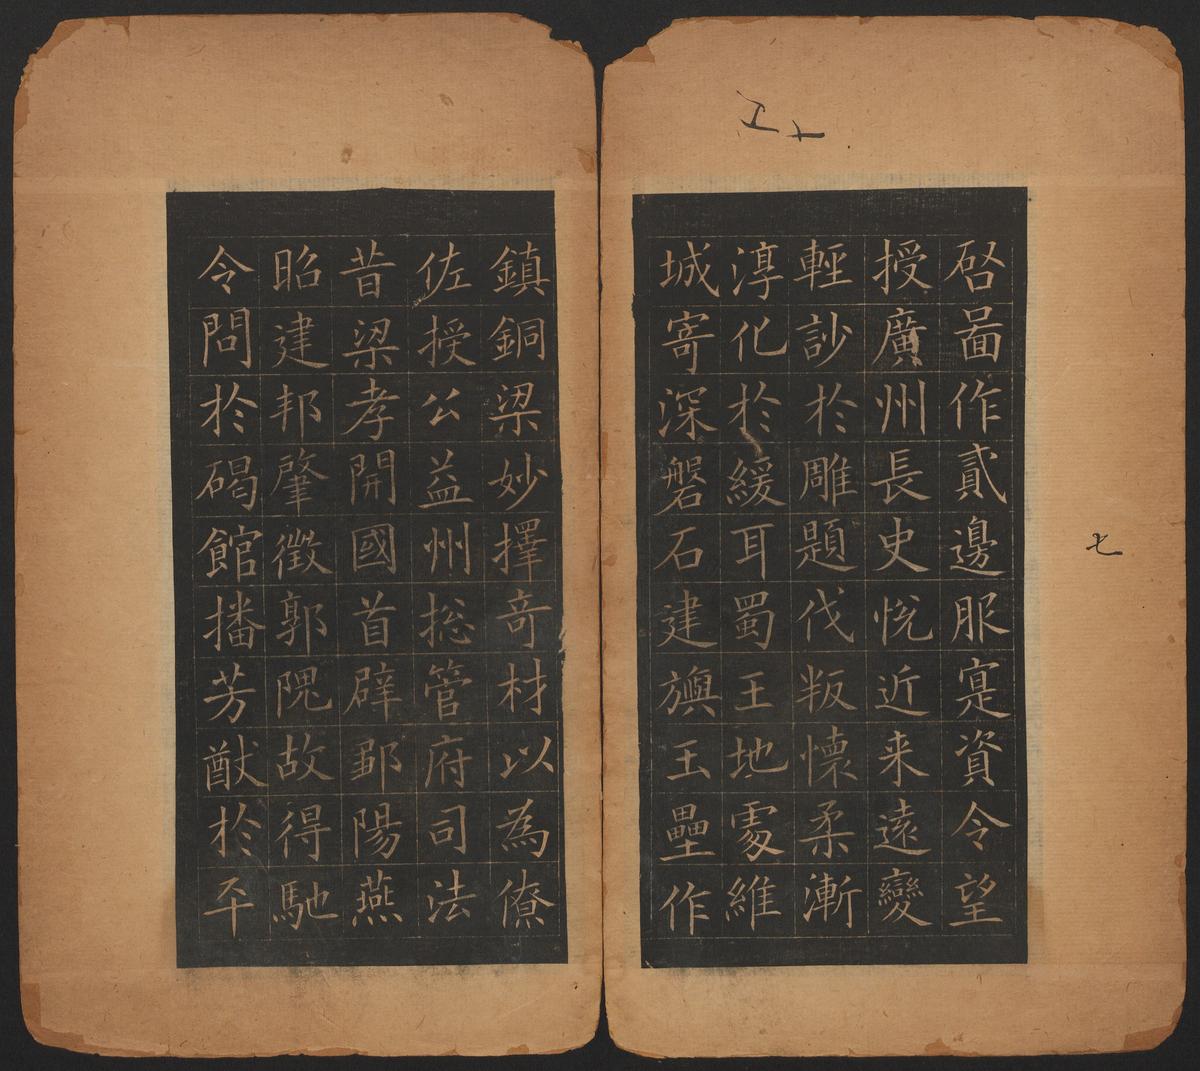 啓啚作貳邊服寔資令望
授廣州長史悅近来遠變
輕訬於雕題伐叛懷柔漸
淳化於緩耳蜀王地處維
城寄深磐石建旟玉壘作
鎮銅梁妙擇奇材以為僚
佐授公益州捴管府司法
昔梁孝開國首辟鄒陽燕
昭建邦肇徵郭隗故得馳
令問於碣館播芳猷於平
七